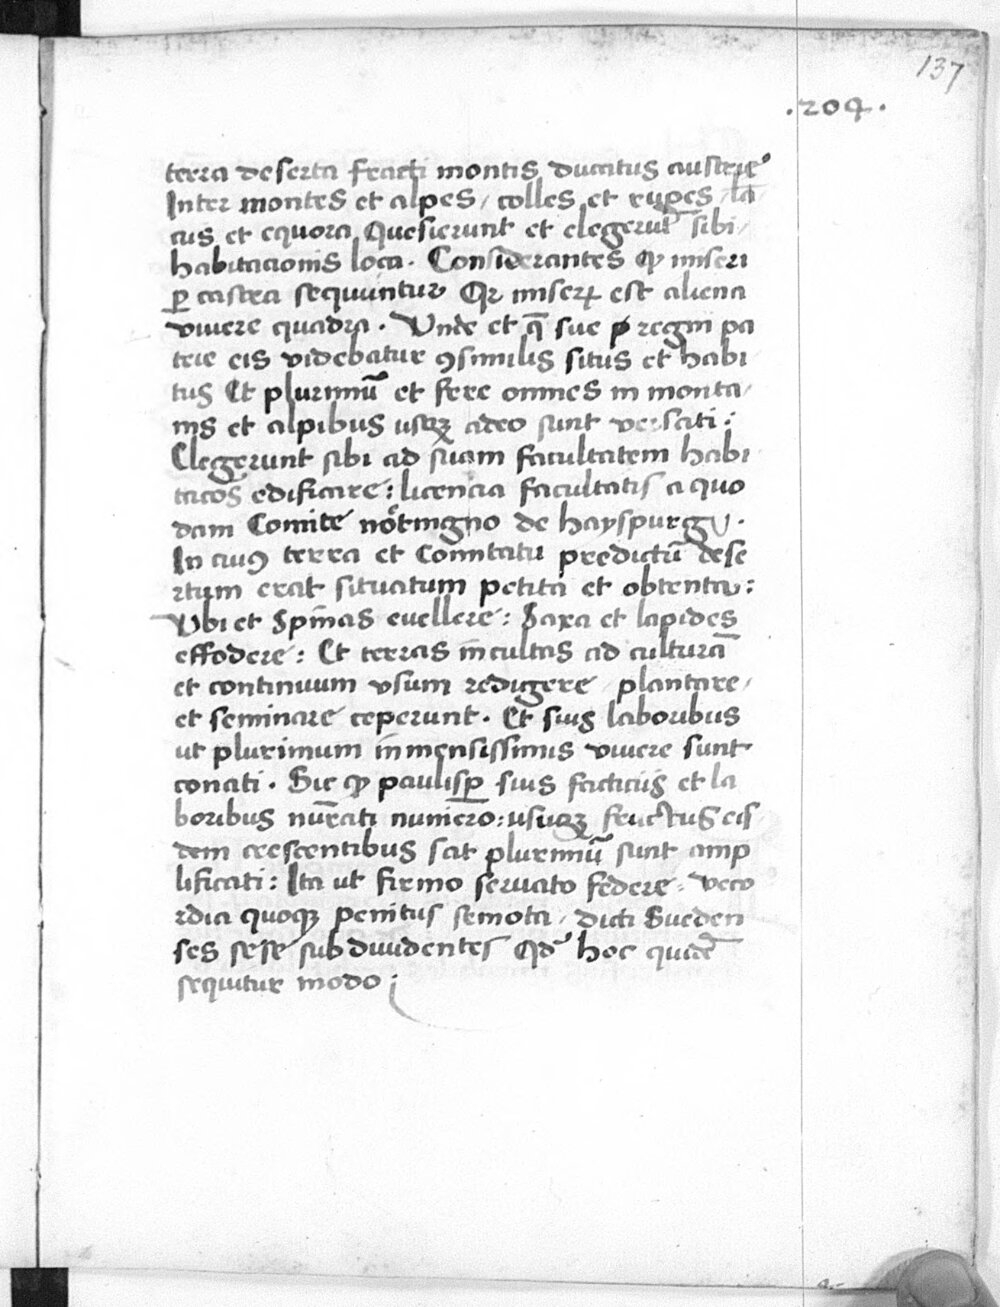 137
.204.
terra deserta fracti montis ducatus austrie
Inter montes et alpes, colles et rupes, la
cus et equora Quesierunt et elegerūt sibi
habitacionis loca. Considerantes qꝫ miseri
ꝑ castra sequuntur Qꝛ miseꝝ est aliena
vivere quadra. Unde et q̄ sue ꝓ regni pa
trie eis videbatur ꝯsimilis situs et habi
tus Et plurimū et fere omnes in monta
nis et alpibus usqꝫ adeo sunt versati:
Elegerunt sibi ad suam facultatem habi
tacōs edificare: licencia facultatis a quo
dam Comite de hayspurg.
In cuiꝰ terra et Comitatu predictū dese
rtum erat situatum petita et obtenta:
Ubi et Spinas evellere: Saxa et lapides
effodere: Et terras incultas ad culturā
et continuum usum redigere, plantare,
et seminare ceperunt. Et suis laboribus
ut plurimum inmensissimis vivere sunt
conati. Sic qꝫ paulisꝑ suis facticiis et la
boribus nūrati numero: usuqꝫ fructus eis
dem crescentibus sat plurimū sunt amp
lificati: Ita ut firmo servato federe: veco
rdia quoqꝫ penitus semota, dicti Sueden
ses sese subdividentes Qd' hoc quidē
sequitur modo;